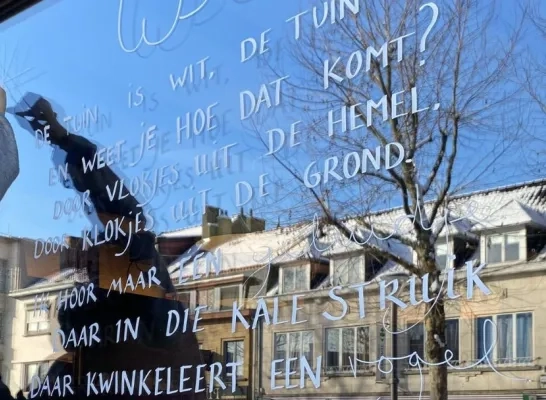 DE TUIN IS WIT, DE TUIN
EN WEET JE HOE DAT KOMT?
DOOR VLOKJES UIT DE HEMEL.
DOOR KLOKJES UIT DE GROND.
IK HOOR MAAR EEN geluid
DAAR IN DIE KALE STRUIK
DAAR KWINKELEERT EEN vogel